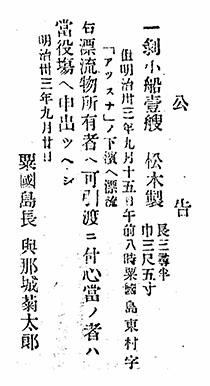 公告
一剝小船壹艘 松木製 長三尋半
巾三尺五寸
但明治卅三年九月十五日午前八時粟國島東村字
「アツスナ」ノ下濱ヘ漂流
右漂流物所有者ハ可引渡ニ付心當ノ者ハ
當役塲ヘ申出ツヘシ
明治卅三年九月廿日
粟國島長 與那城菊太郎